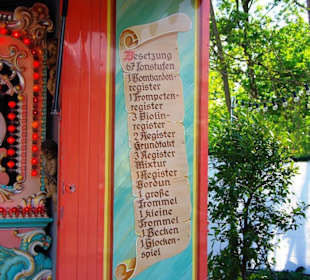 Besetzung
67 Tonstufen
1 Bombardon-
register
1 Trompeten-
register
3 Violin-
register
2 Register
Grundtakt
3 Register
Mixtur
1 Register
Bordun
1 große
Trommel
1 kleine
Trommel
1 Becken
1 Glocken-
spiel